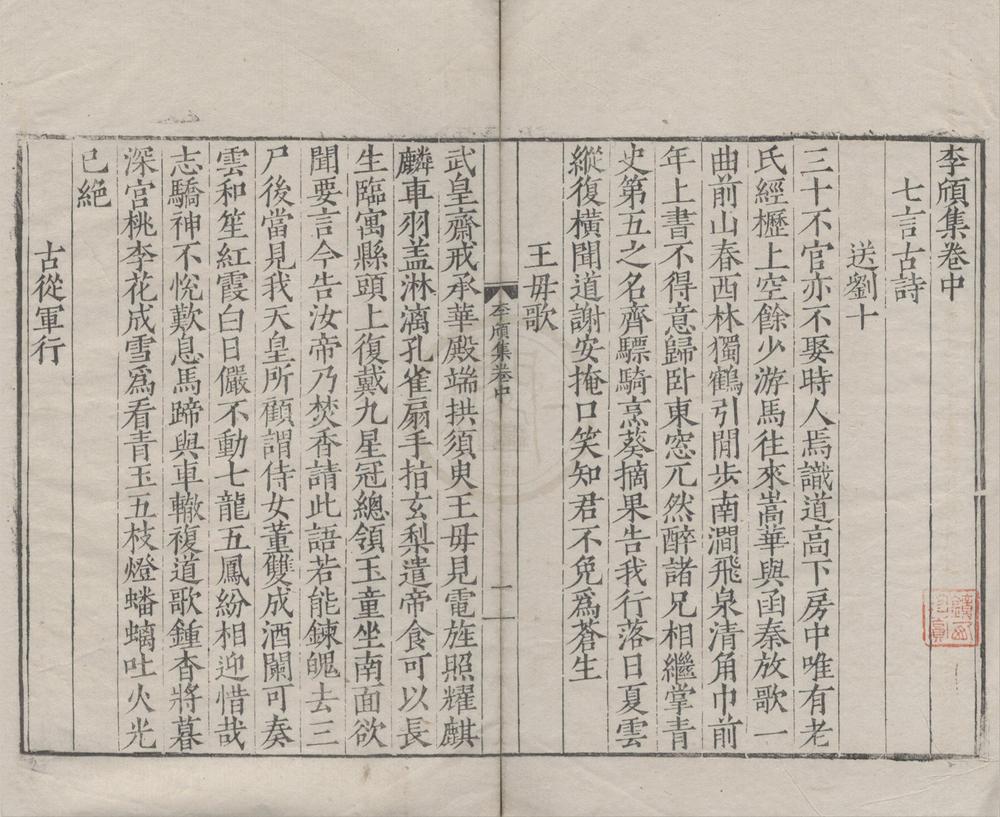 李頎集卷中
七言古詩
送劉十
三十不官亦不娶時人焉識道高下房中唯有老
氏經櫪上空餘少游馬往來嵩華與函秦放歌一
曲前山春西林獨鶴引閒步南澗飛泉清角巾前
年上書不得意歸臥東窓兀然醉諸兄相繼掌青
史第五之名齊驃騎烹葵摘果告我行落日夏雲
縱復橫聞道謝安掩口笑知君不免爲蒼生
王母歌
李頎集卷中
一
武皇齋戒承華殿端拱須臾王母見電旌照耀麒
麟車羽盖淋漓孔雀扇手拍玄梨遣帝食可以長
生臨寓縣頭上復戴九星冠總領玉童坐南面欲
聞要言今告汝帝乃焚香請此語若能鍊魄去三
尸後當見我天皇所顧謂侍女董雙成酒闌可奏
雲和笙紅霞白日儼不動七龍五鳳紛相迎惜哉
志驕神不悅歎息馬蹄與車轍複道歌鍾杳將暮
深宮桃李花成雪爲看青玉五枝燈蟠螭吐火光
已絕
古從軍行